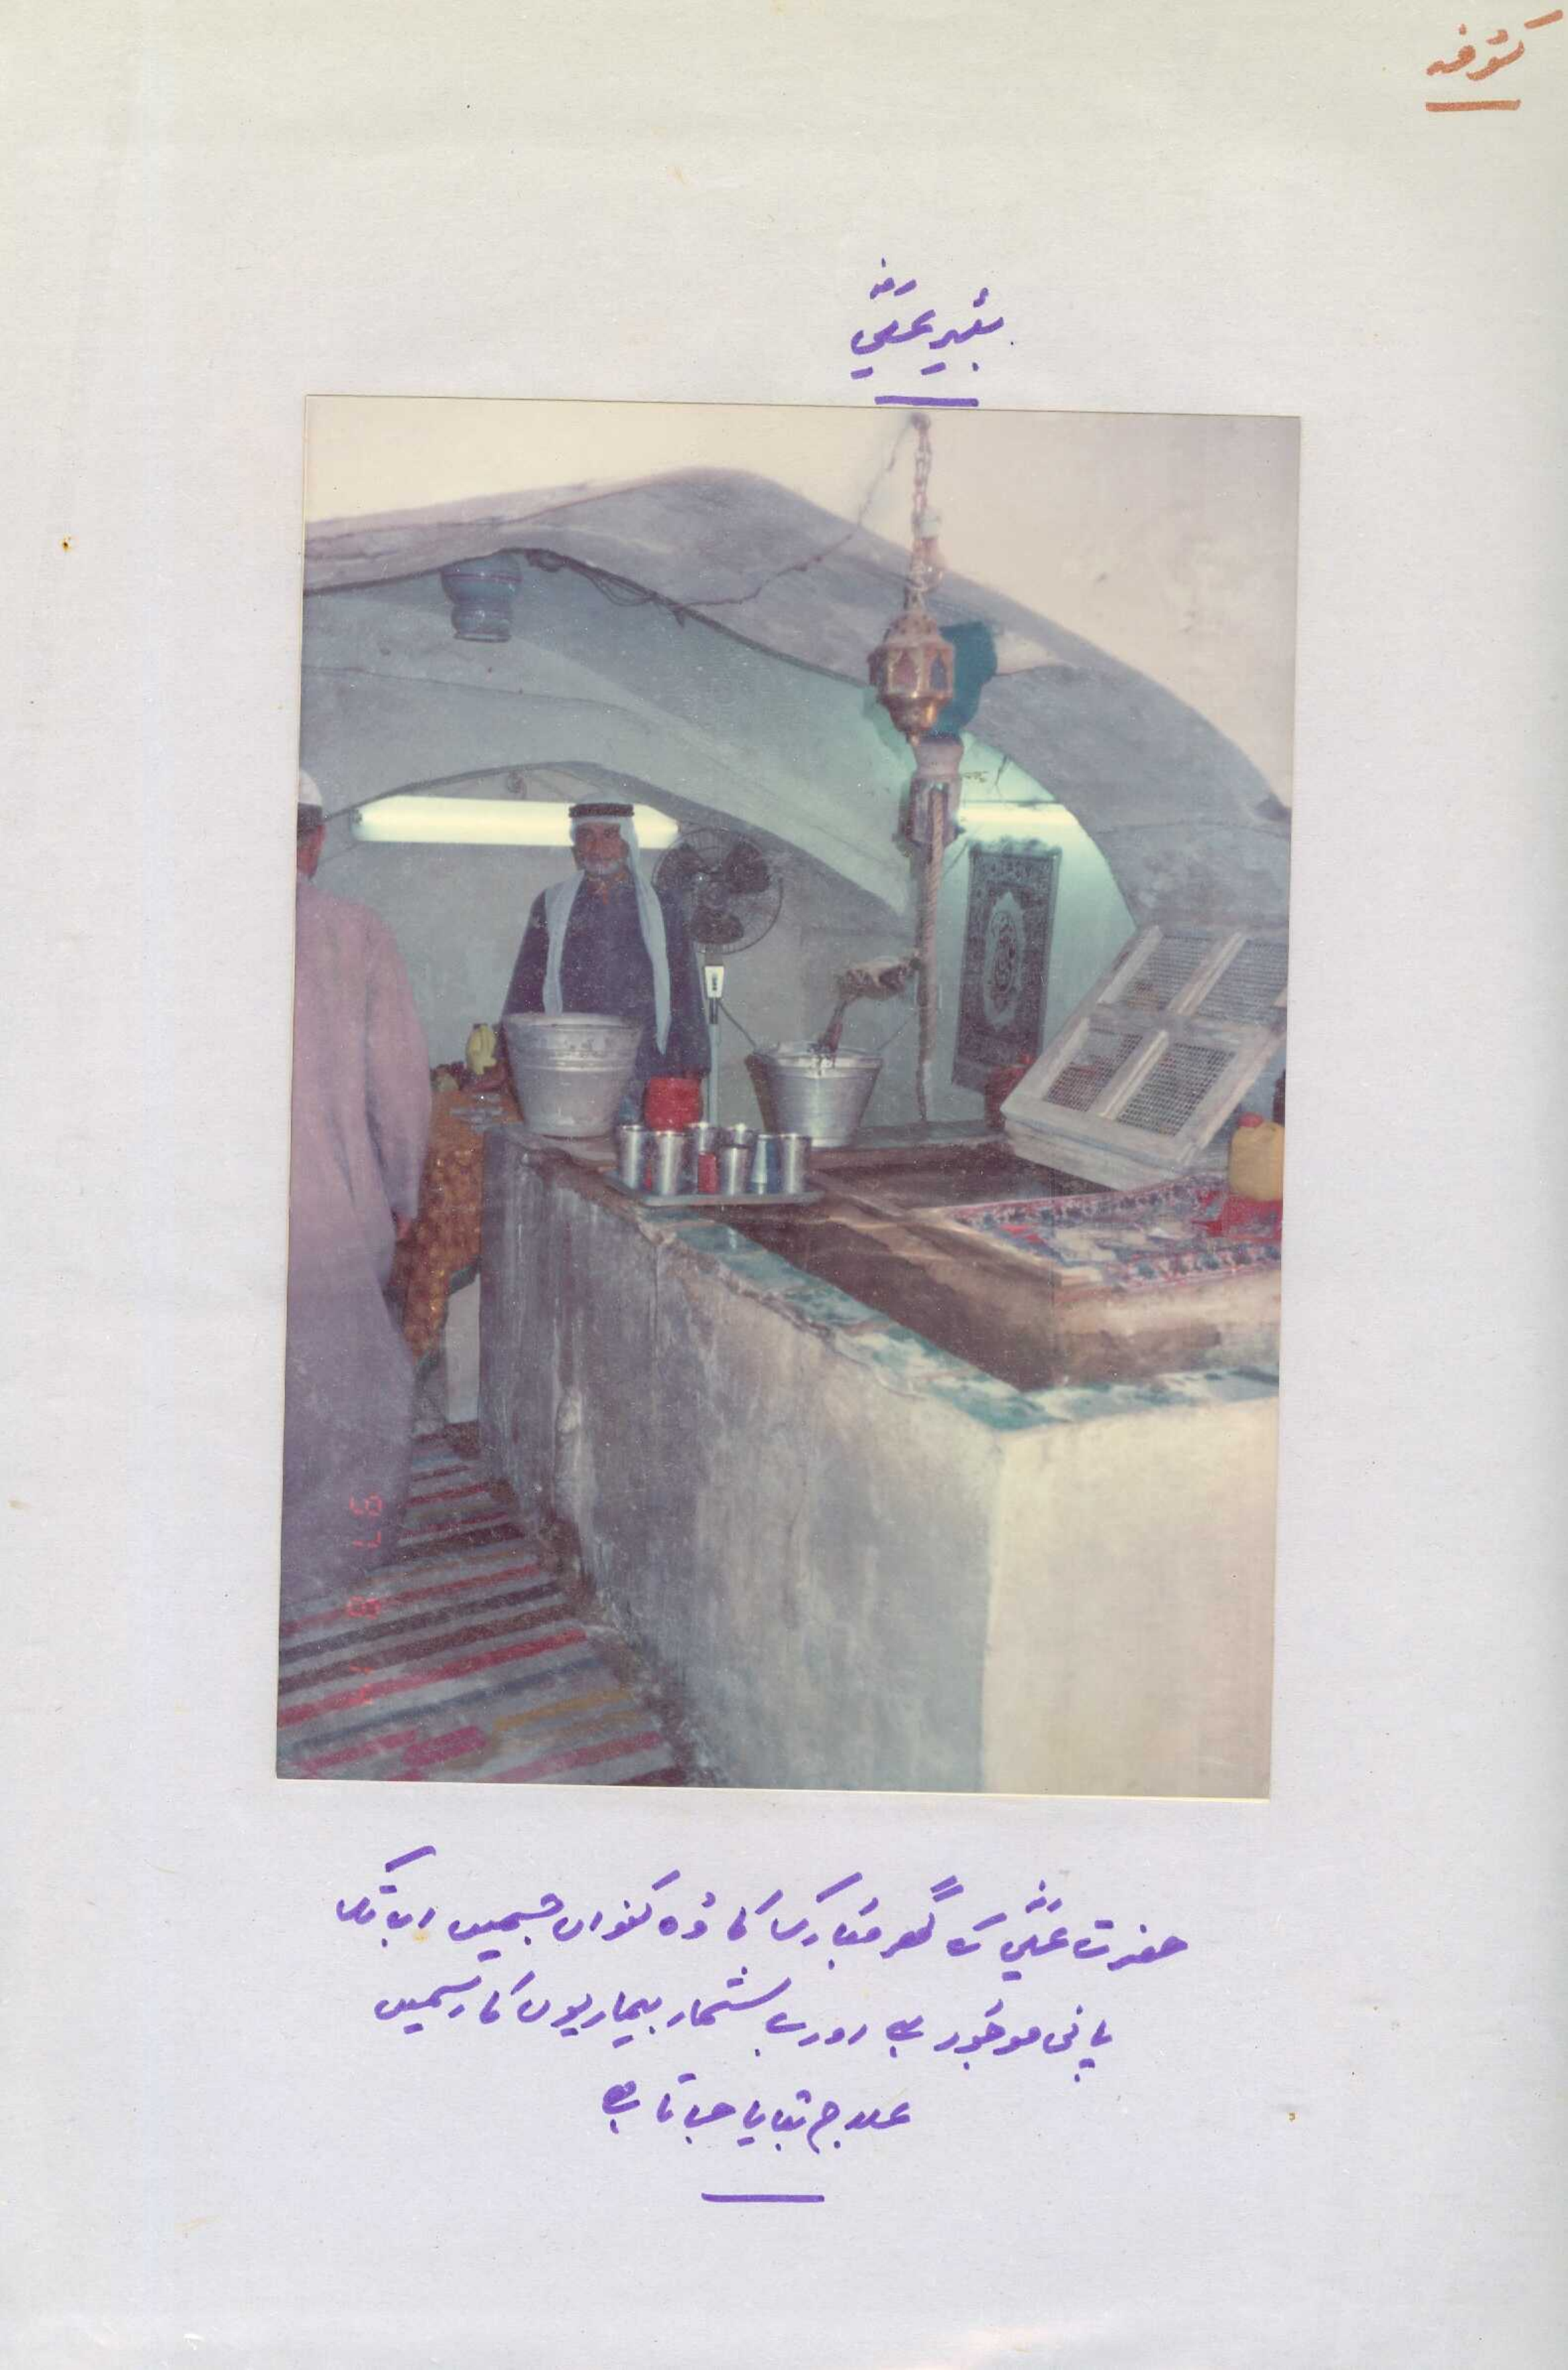 کوفہ
بئیر علیؓ
حضرت علیؓ کے گھر مبارک کا وہ کنواں جسمیں اب تک
پانی موجود ہے اور بے شمار بیماریوں کا اسمیں
علاج بتایا جاتا ہے